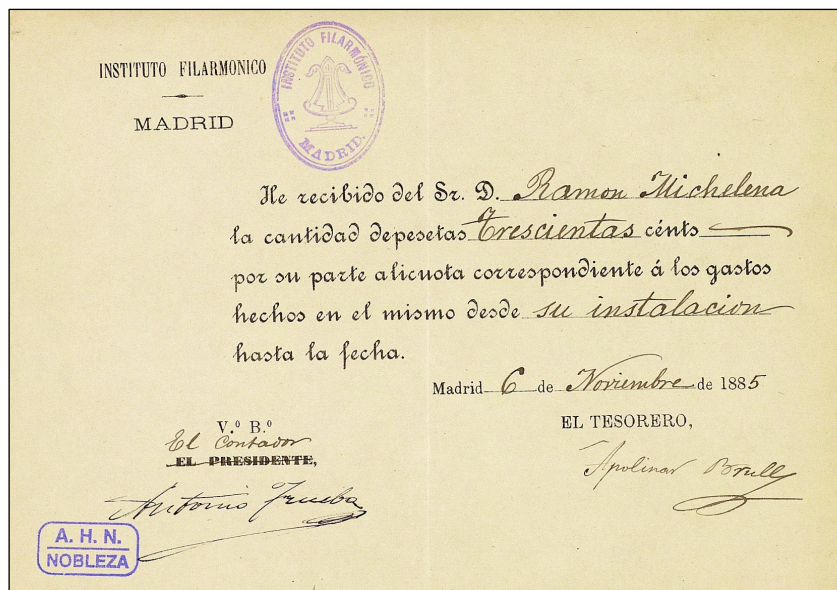 INSTITUTO FILARMONICO
MADRID
INSTITUTO FILARMÓNICO
MADRID.
He recibido del Sr. D. Ramon Michelena
la cantidad depesetas Trescientas cénts
por su parte alicuota correspondiente á los gastos
hechos en el mismo desde su instalacion
hasta la fecha.
Madrid 6 de Noviembre de 1885
V.º B.º
El Contador
EL PRESIDENTE,
Antonio Trueba
EL TESORERO,
Apolinar Brull
A. H. N.
NOBLEZA